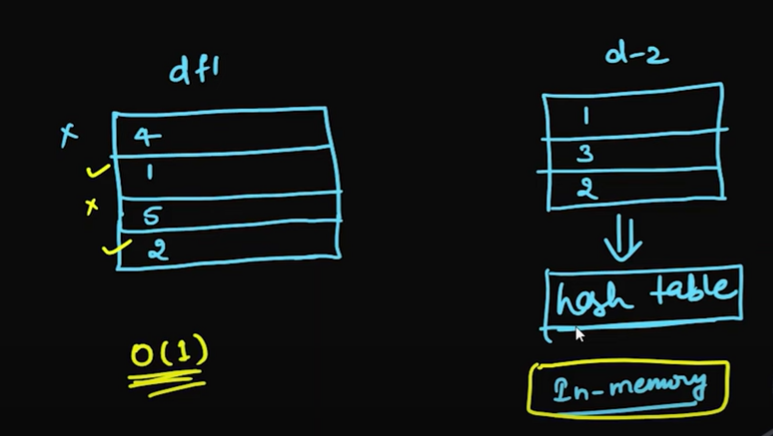 df1
x 4
✓ 1
x 5
✓ 2
O(1)
d-2
1
3
2
⇓
hash table
In-memory